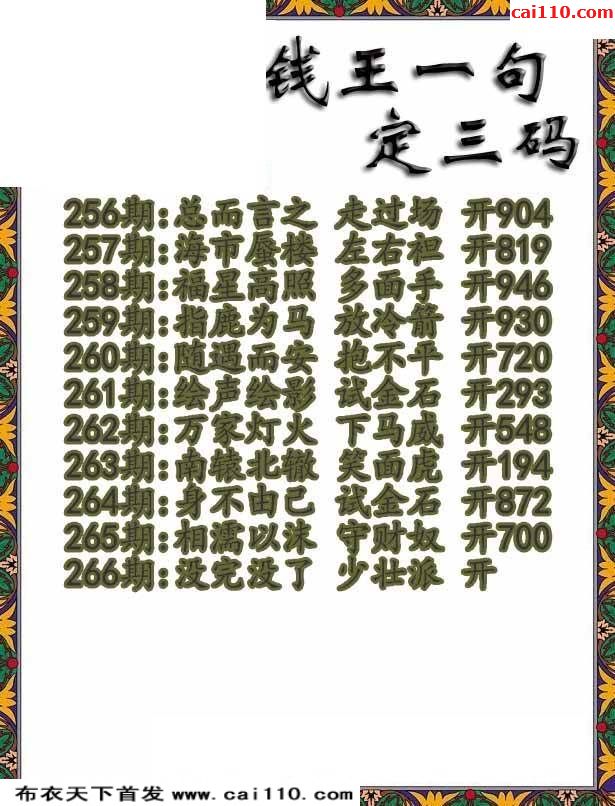 cai110.com
钱王一句
定三码
256期:总而言之 走过场 开904
257期:海市蜃楼 左右袒 开819
258期:福星高照 多面手 开946
259期:指鹿为马 放冷箭 开930
260期:随遇而安 抱不平 开720
261期:绘声绘影 试金石 开293
262期:万家灯火 下马威 开548
263期:南辕北辙 笑面虎 开194
264期:身不由己 试金石 开872
265期:相濡以沫 守财奴 开700
266期:没完没了 少壮派 开
布衣天下首发 www.cai110.com